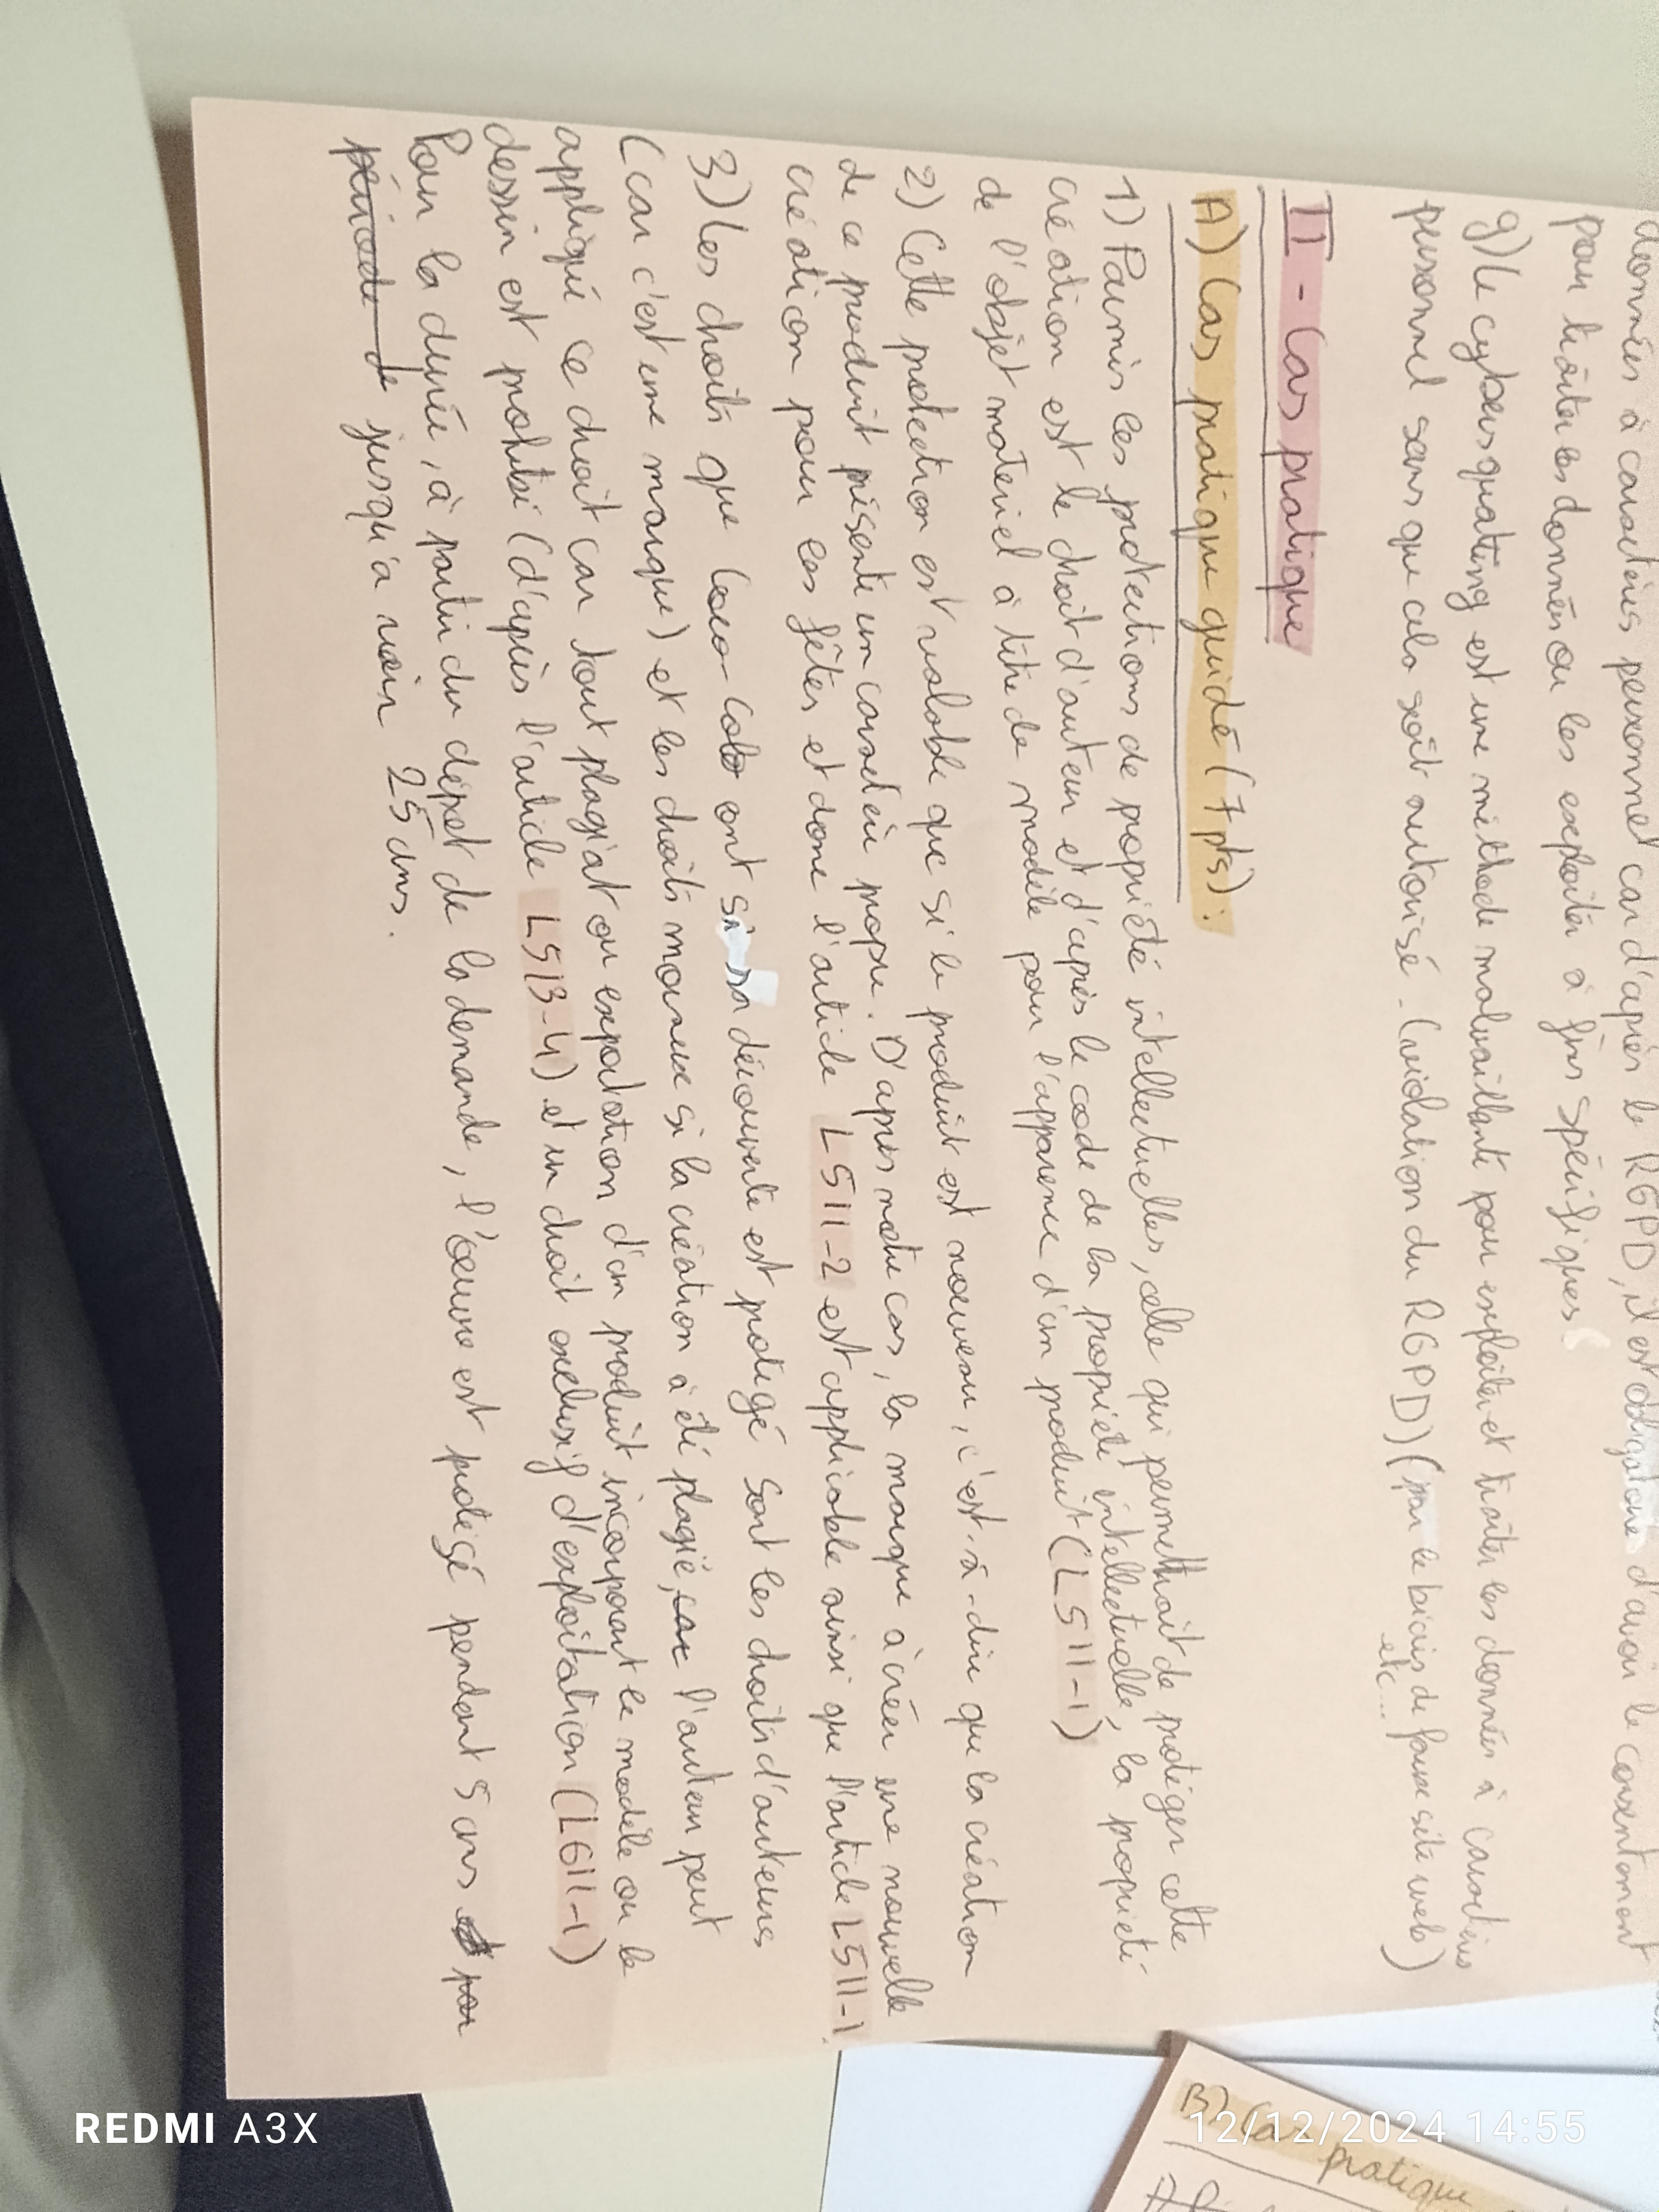 données à caractères personnel car d'après le RGPD, il est obligatoire d'avoir le consentement
pour traiter les données ou les exploiter à fins spécifiques
g) Le cybersquatting est une méthode malvaillante pour exploiter et traiter les données à caractères
personnel sans que cela soit autorisé. (violation du RGPD) (par le biais de faux site web)
etc...
II - Cas pratique
A) Cas pratique guidé (7 pts) :
1) Parmis les protections de propiété intellectuelles, celle qui permettrait de protéger cette
création est le droit d'auteur et d'après le code de la propriété intellectuelle, la propriété
de l'objet matériel à titre de modèle pour l'apparence d'un produit (L511-1)
2) Cette protection est valable que si le produit est nouveau, c'est-à-dire que la création
de ce produit présente un caractère propre. D'après notre cas, la marque à créer une nouvelle
création pour les fêtes et donc l'article L511-2 est applicable ainsi que l'article L511-1.
3) Les droits que Coca-Cola ont si sa découverte est protégé sont les droits d'auteurs
(car c'est une marque) et les droits moraux si la création à été plagié, car l'auteur peut
appliqué ce droit car tout plagiat ou exportation d'un produit incorporant le modèle ou le
dessin est prohibé (d'après l'article L513-4) et un droit exclusif d'exploitation (L611-1)
Pour la durée, à partir du dépot de la demande, l'œuvre est protégé pendant 5 ans par
période de jusqu'a voir 25 ans.
B) Cas pratique
REDMI A3X
12/12/2024 14:55